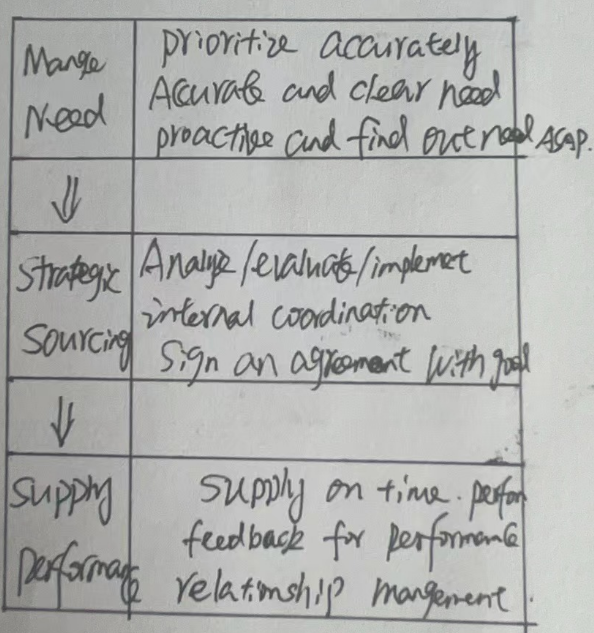 Mange
Need
prioritize accurately
Accurate and clear need
proactive and find out need ASAP.
⇓
Strategic
Sourcing
Analyze/evaluate/implemet
internal coordination
Sign an agreement with goal
⇓
Supply
performance
Supply on time. perfon
feedback for performance
relationship mangement.